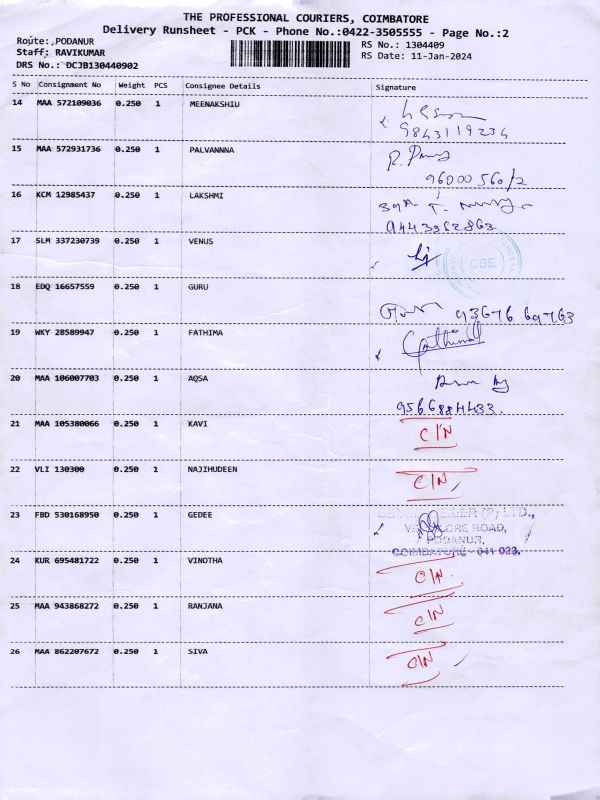 THE PROFESSIONAL COURIERS, COIMBATORE
Delivery Runsheet - PCK - Phone No.:0422-3505555 - Page No.:2
Route: PODANUR
Staff: RAVIKUMAR
DRS No.: DCJB130440902
RS No.: 1304409
RS Date: 11-Jan-2024
S No Consignment No Weight PCS Consignee Details Signature
14 MAA 572109036 0.250 1 MEENAKSHIU
9843119234
15 MAA 572931736 0.250 1 PALVANNNA
9600056012
16 KCM 12985437 0.250 1 LAKSHMI
9443352863
17 SLM 337230739 0.250 1 VENUS
CBE
18 EDQ 16657559 0.250 1 GURU
93676 69763
19 WKY 28589947 0.250 1 FATHIMA
Fathima
20 MAA 106007703 0.250 1 AQSA
9566884433.
21 MAA 105380066 0.250 1 KAVI C/N
22 VLI 130300 0.250 1 NAJIHUDEEN C/N
23 FBD 530168950 0.250 1 GEDEE
(P) LTD.,
ROAD,
PODANUR,
COIMBATORE - 641 023.
24 KUR 695481722 0.250 1 VINOTHA C/N
25 MAA 943868272 0.250 1 RANJANA C/N
26 MAA 862207672 0.250 1 SIVA C/N